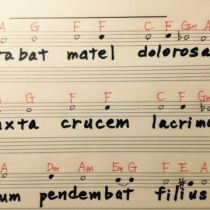 A G F F C F Gm A
abat matel dolorosa
G F F C F Gm
xta crucem lacrim
A Dm Am Em G F E A
um pendembat filius